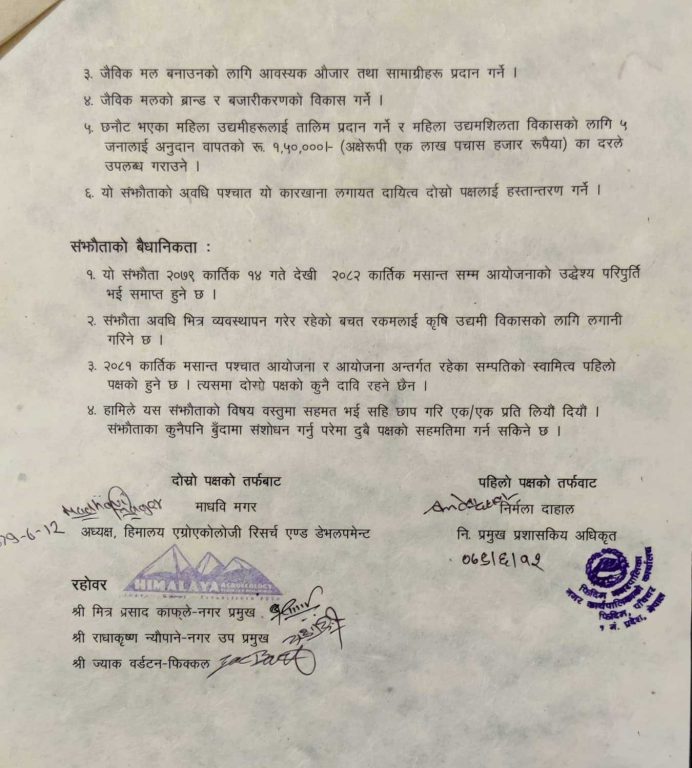 ३. जैविक मल बनाउनको लागि आवस्यक औजार तथा सामाग्रीहरू प्रदान गर्ने ।
४. जैविक मलको ब्रान्ड र बजारीकरणको विकास गर्ने ।
५. छनौट भएका महिला उद्यमीहरूलाई तालिम प्रदान गर्ने र महिला उद्यमशिलता विकासको लागि ५
जनालाई अनुदान वापतको रू. १,५०,०००।- (अक्षेरूपी एक लाख पचास हजार रूपैया) का दरले
उपलब्ध गराउने ।
६. यो संझौताको अवधि पश्चात यो कारखाना लगायत दायित्व दोस्रो पक्षलाई हस्तान्तरण गर्ने ।
संझौताको बैधानिकता :
१. यो संझौता २०७९ कार्तिक १४ गते देखी २०८२ कार्तिक मसान्त सम्म आयोजनाको उद्धेश्य परिपुर्ति
भई समाप्त हुने छ ।
२. संझौता अवधि भित्र व्यवस्थापन गरेर रहेको बचत रकमलाई कृषि उद्यमी विकासको लागि लगानी
गरिने छ ।
३. २०८१ कार्तिक मसान्त पश्चात आयोजना र आयोजना अन्तर्गत रहेका सम्पतिको स्वामित्व पहिलो
पक्षको हुने छ । त्यसमा दोस्रो पक्षको कुनै दावि रहने छैन ।
४. हामिले यस संझौताको विषय वस्तुमा सहमत भई सहि छाप गरि एक/एक प्रति लियौं दियौं ।
संझौताका कुनैपनि बुँदामा संशोधन गर्नु परेमा दुबै पक्षको सहमतिमा गर्न सकिने छ ।
दोस्रो पक्षको तर्फबाट पहिलो पक्षको तर्फवाट
माधवि मगर निर्मला दाहाल
79-6-12 अध्यक्ष, हिमालय एग्रोएकोलोजी रिसर्च एण्ड डेभलपमेन्ट नि. प्रमुख प्रशासकिय अधिकृत
०७९/६/१२
HIMALAYA AGROECOLOGY
रहोवर
श्री मित्र प्रसाद काफ्ले-नगर प्रमुख
श्री राधाकृष्ण न्यौपाने-नगर उप प्रमुख
श्री ज्याक वर्डटन-फिक्कल
फिदिम नगरपालिका
नगर कार्यपालिकाको कार्यालय
फिदिम, पाँचथर
१ नं. प्रदेश, नेपाल